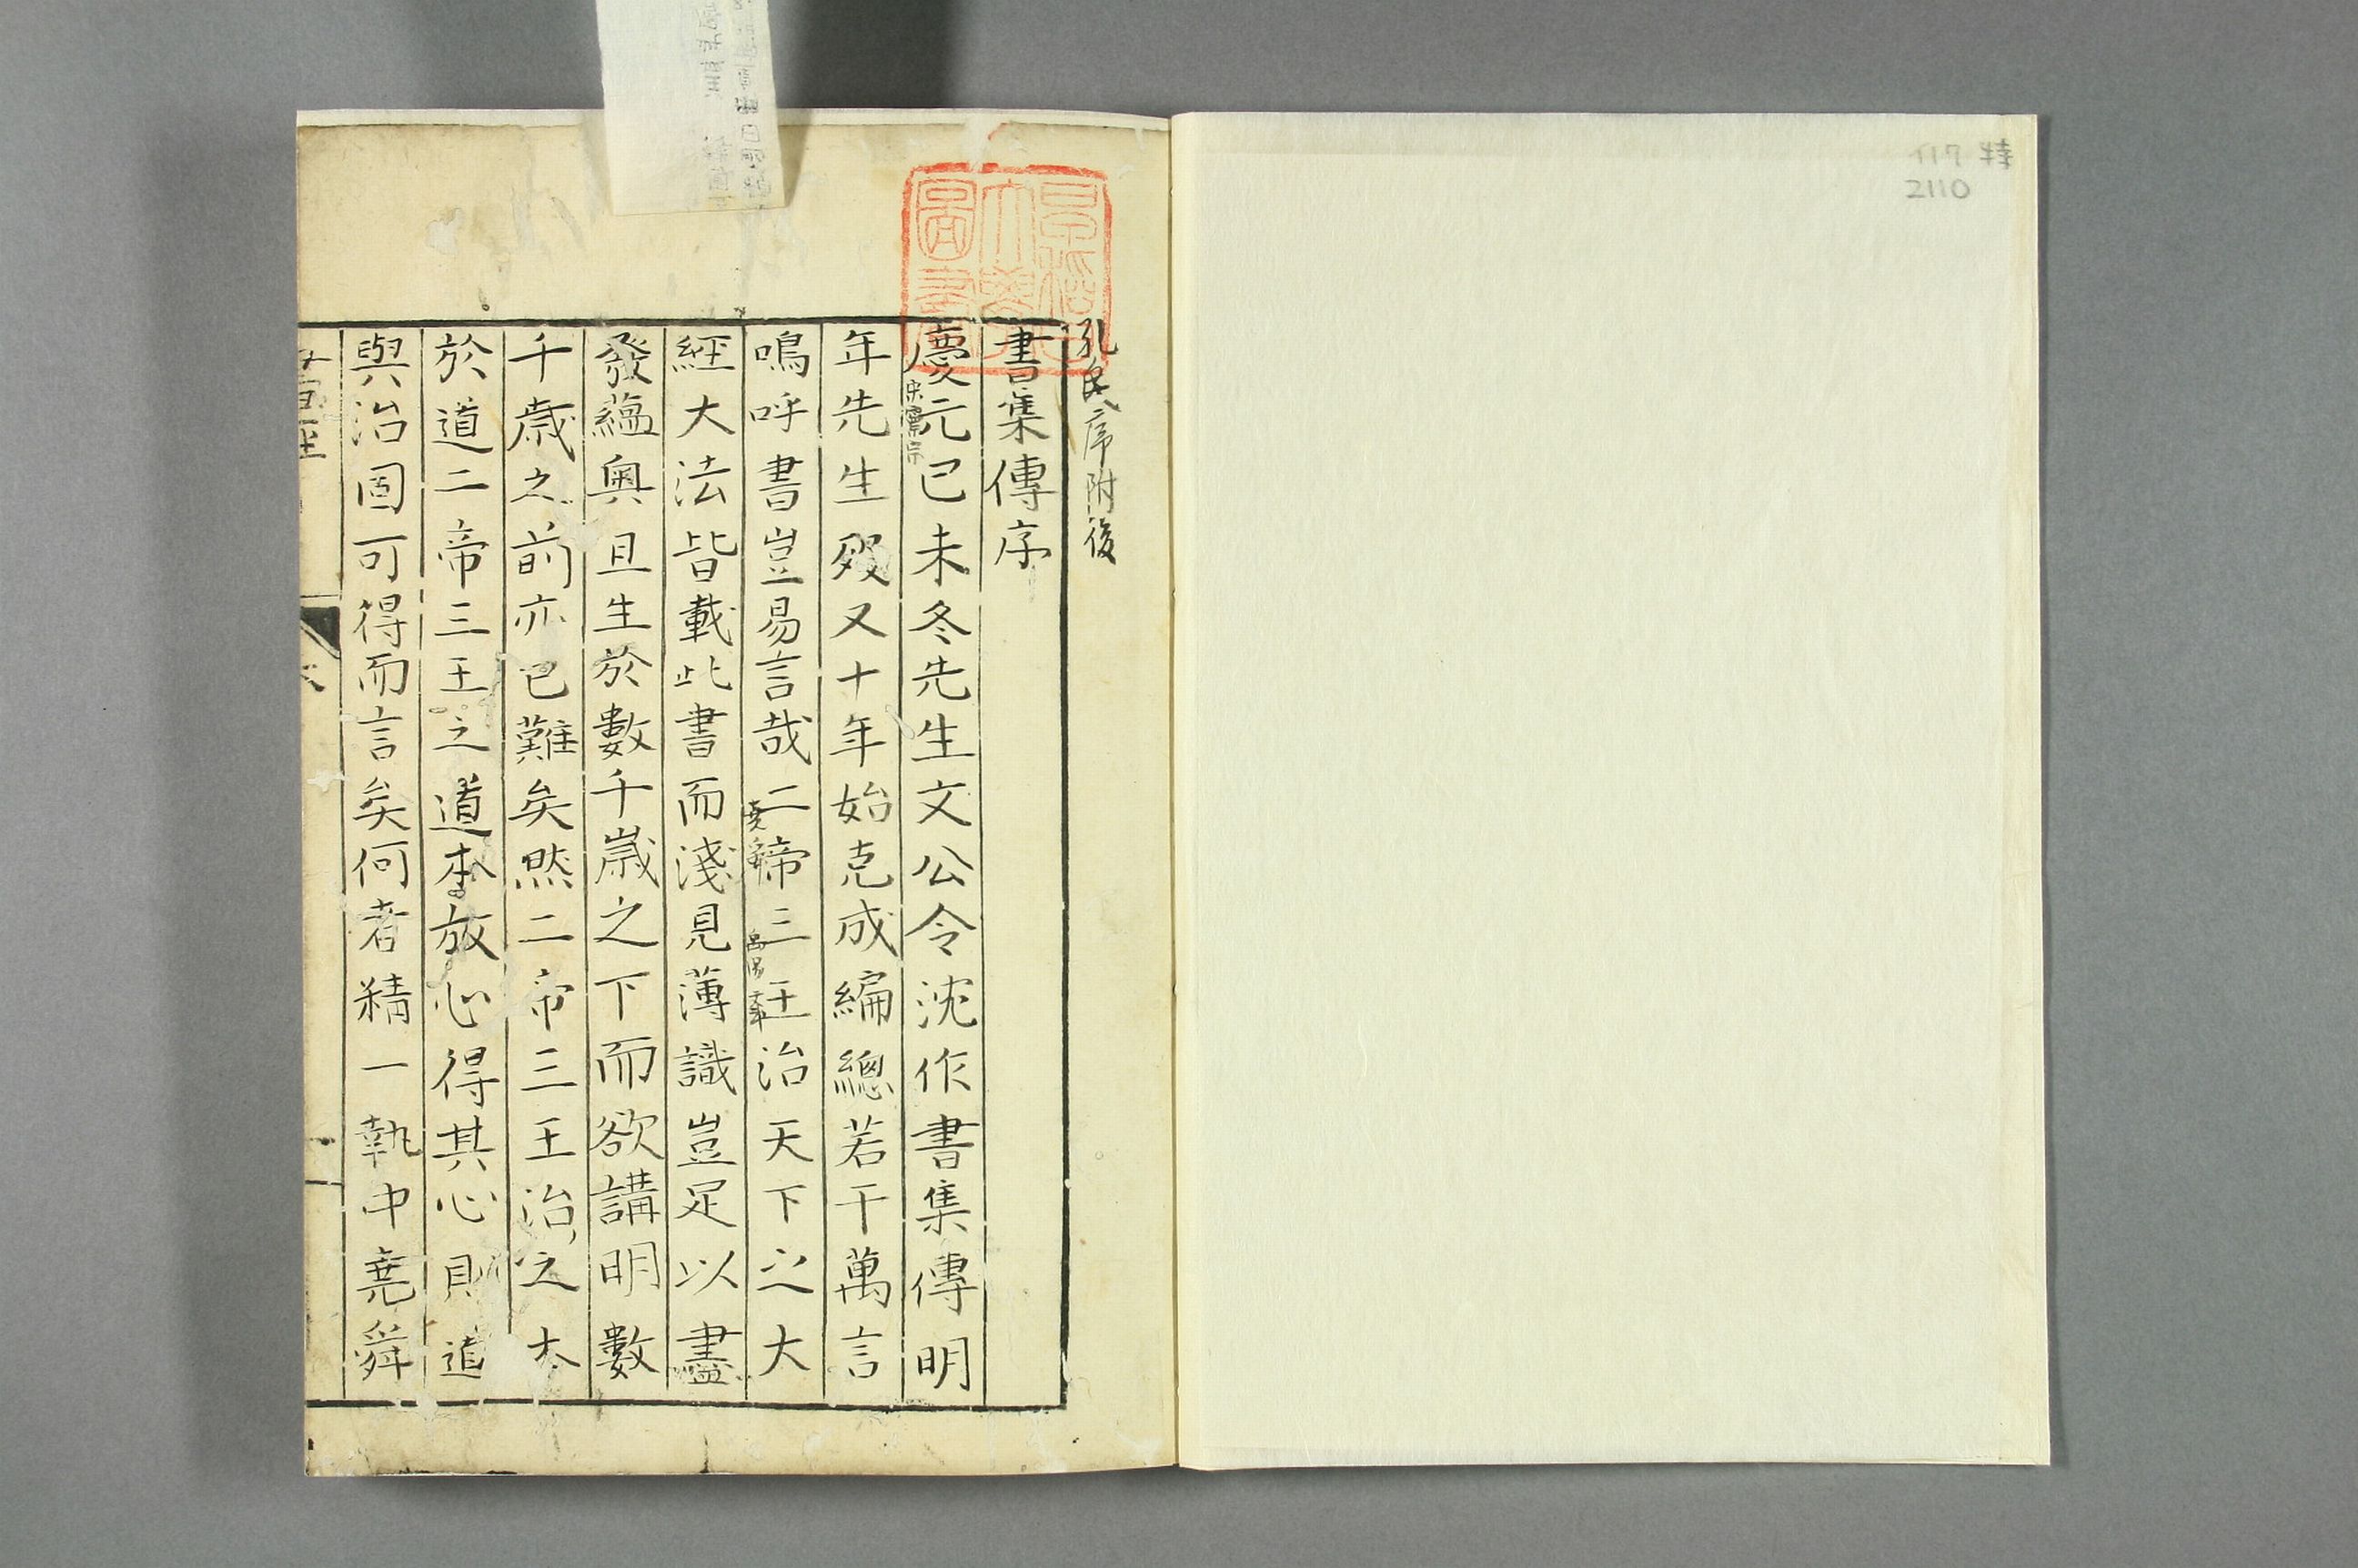 117 特
2110
孔氏序附後
書集傳序
慶元己未冬先生文公令沈作書集傳明
宋寧宗
年先生歿又十年始克成編總若干萬言
嗚呼書豈易言哉二帝三王治天下之大
堯舜
禹湯文武
經大法皆載此書而淺見薄識豈足以盡
發蘊奧且生於數千歲之下而欲講明數
千歲之前亦已難矣然二帝三王治之本
於道二帝三王之道本於心得其心則道
與治固可得而言矣何者精一執中堯舜